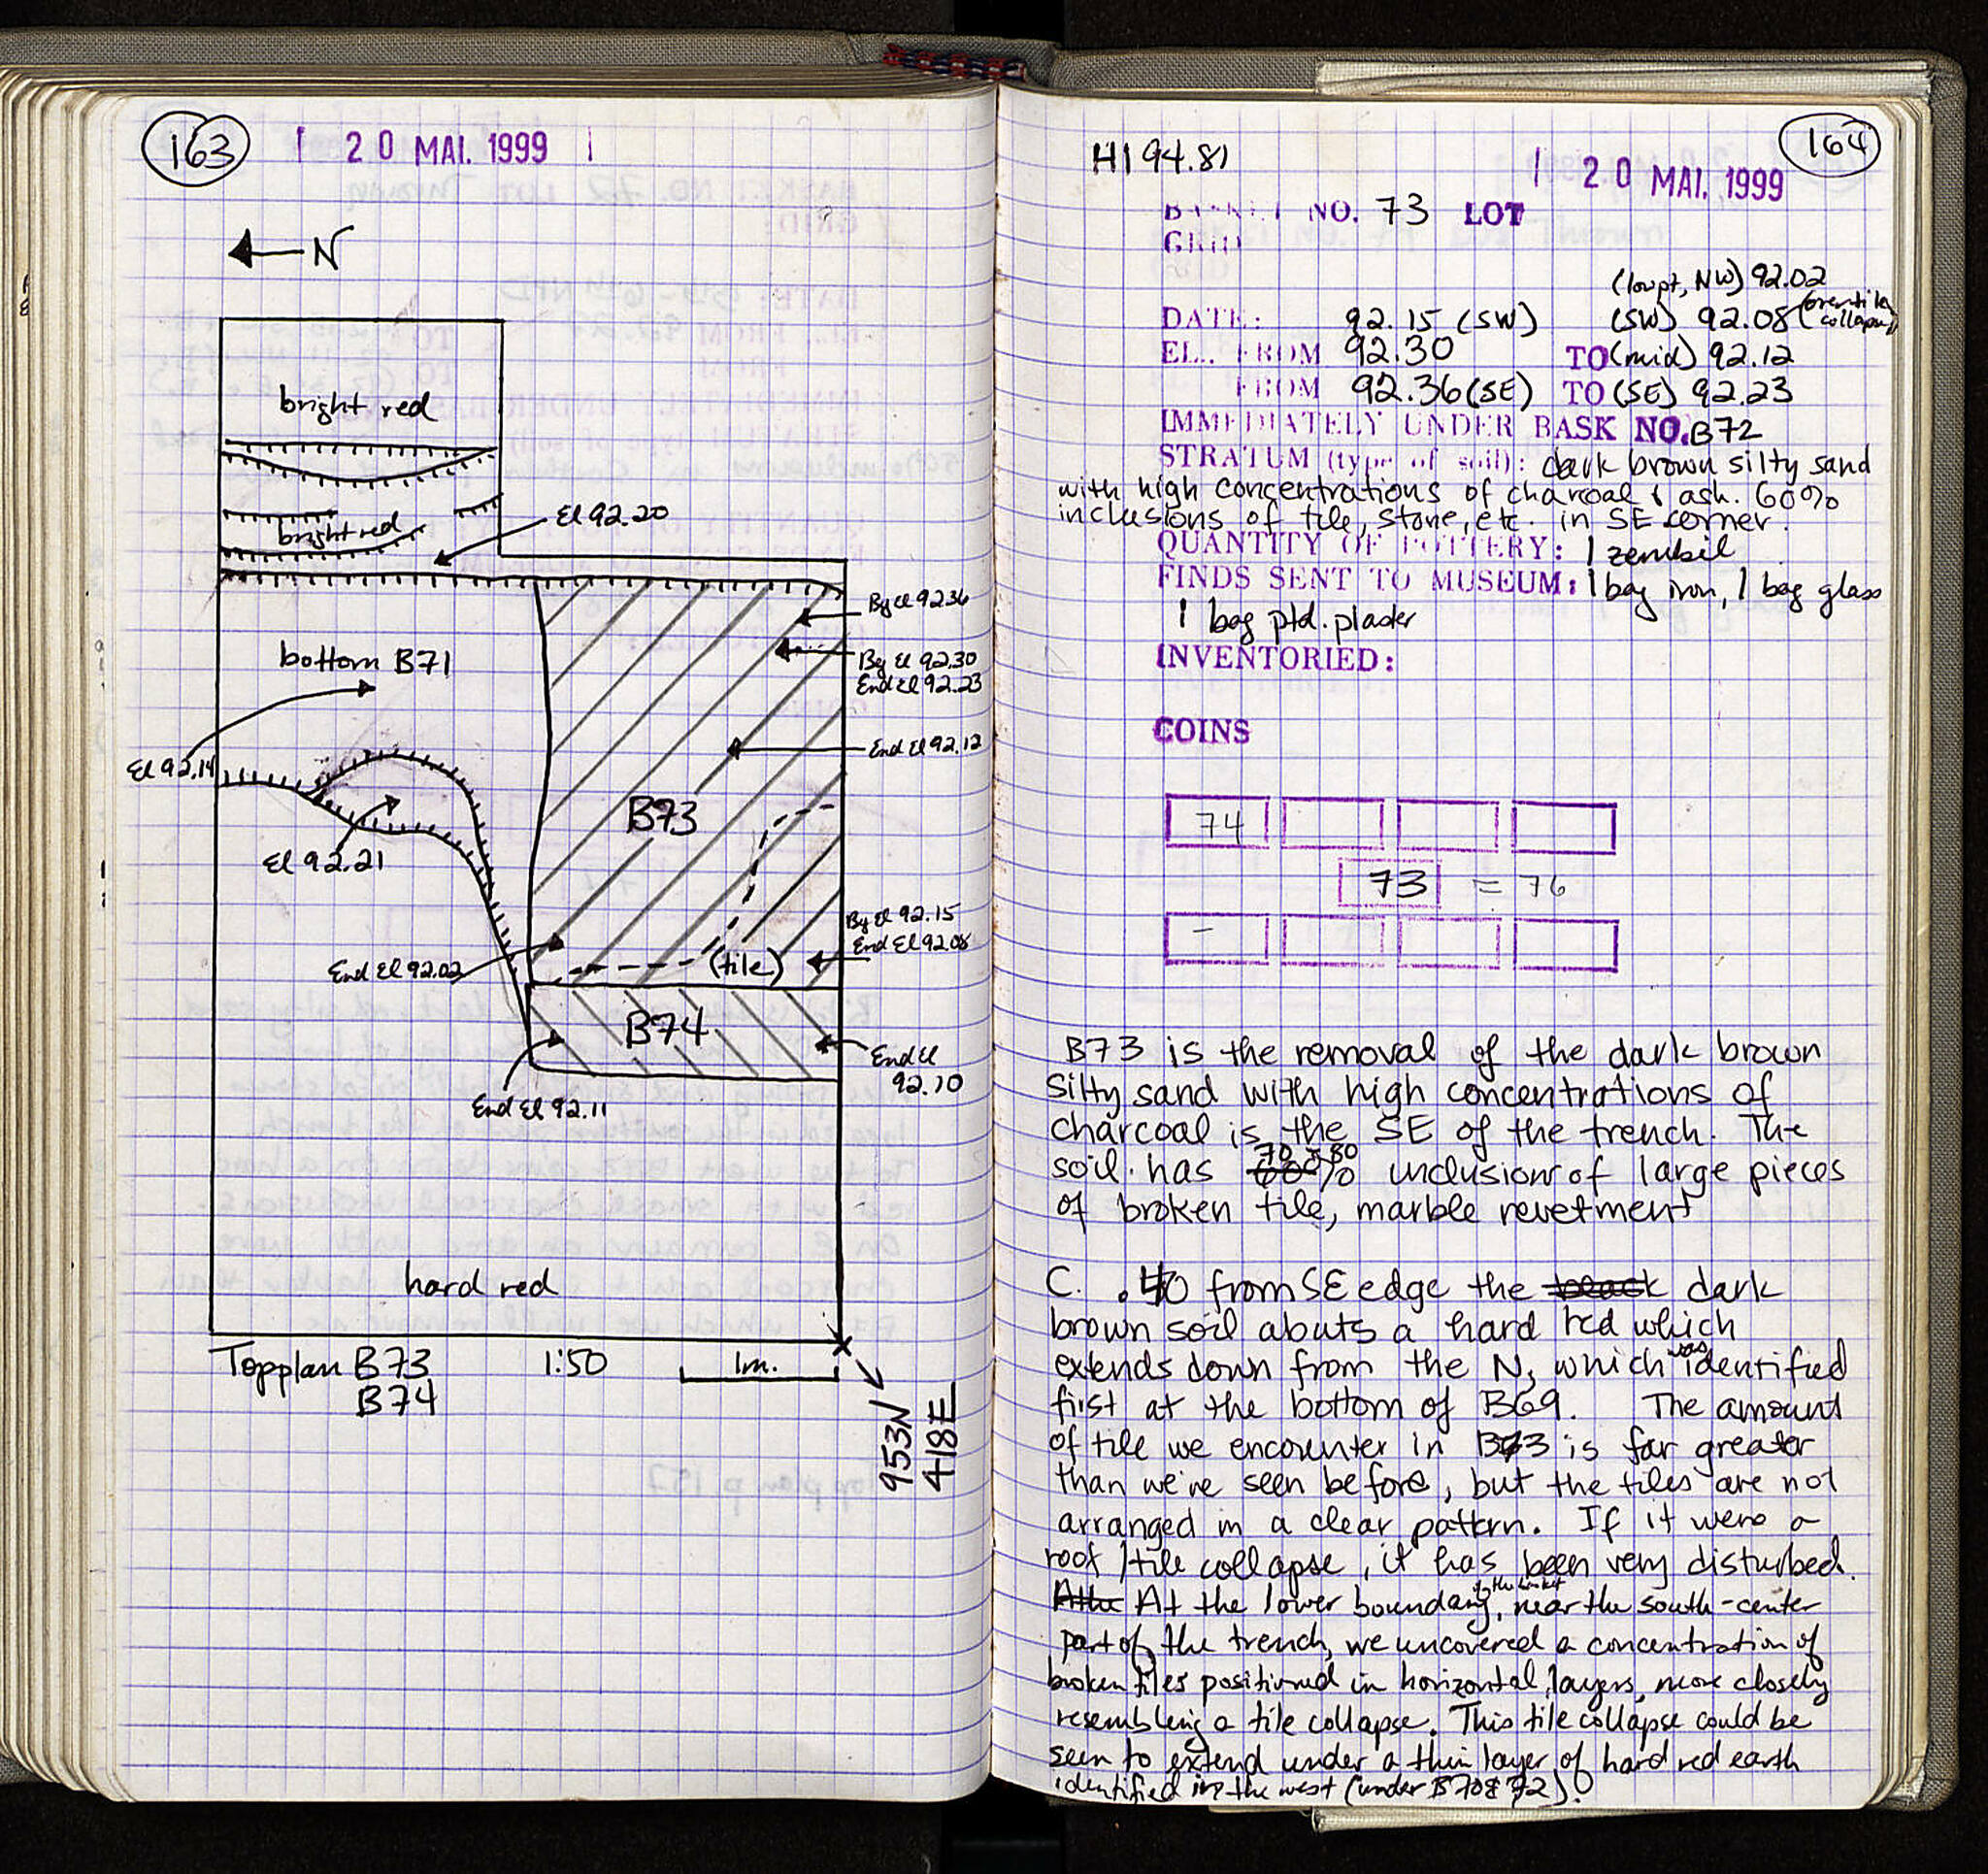 163
20 MAI. 1999
N
bright red
bright red
El 92.20
Beg El 92.36
bottom B71
Beg El 92.30
End El 92.23
End El 92.12
El 92.14
B73
El 92.21
Beg El 92.15
End El 92.08
End El 92.02
(tile)
B74
End El
92.10
End El 92.11
hard red
Topplan B73
B74
1:50
1m.
953N
418E
164
HI 94.81
20 MAI. 1999
BASKET NO. 73 LOT
GRID
(lowpt, NW) 92.02
DATE: 92.15 (SW) (SW) 92.08 (over tile collapse)
EL. FROM 92.30 TO (mid) 92.12
FROM 92.36 (SE) TO (SE) 92.23
IMMEDIATELY UNDER BASK NO. B72
STRATUM (type of soil): dark brown silty sand
with high concentrations of charcoal & ash. 60%
inclusions of tile, stone, etc. in SE corner.
QUANTITY OF POTTERY: 1 zembil
FINDS SENT TO MUSEUM: 1 bag iron, 1 bag glass
1 bag ptd. plaster
INVENTORIED:
COINS
74
73 = 76
-
B73 is the removal of the dark brown
silty sand with high concentrations of
charcoal is the SE of the trench. The
soil has 60% 70-80 inclusion of large pieces
of broken tile, marble revetment
C. .40 from SE edge the black dark
brown soil abuts a hard red which
extends down from the N, which was identified
first at the bottom of B69. The amount
of tile we encounter in B73 is far greater
than we've seen before, but the tiles are not
arranged in a clear pattern. If it were a
roof/tile collapse, it has been very disturbed.
At the lower boundary of the basket, near the south-center
part of the trench, we uncovered a concentration of
broken tiles positioned in horizontal layers, more closely
resembling a tile collapse. This tile collapse could be
seen to extend under a thin layer of hard red earth
identified in the west (under B70 & 72).